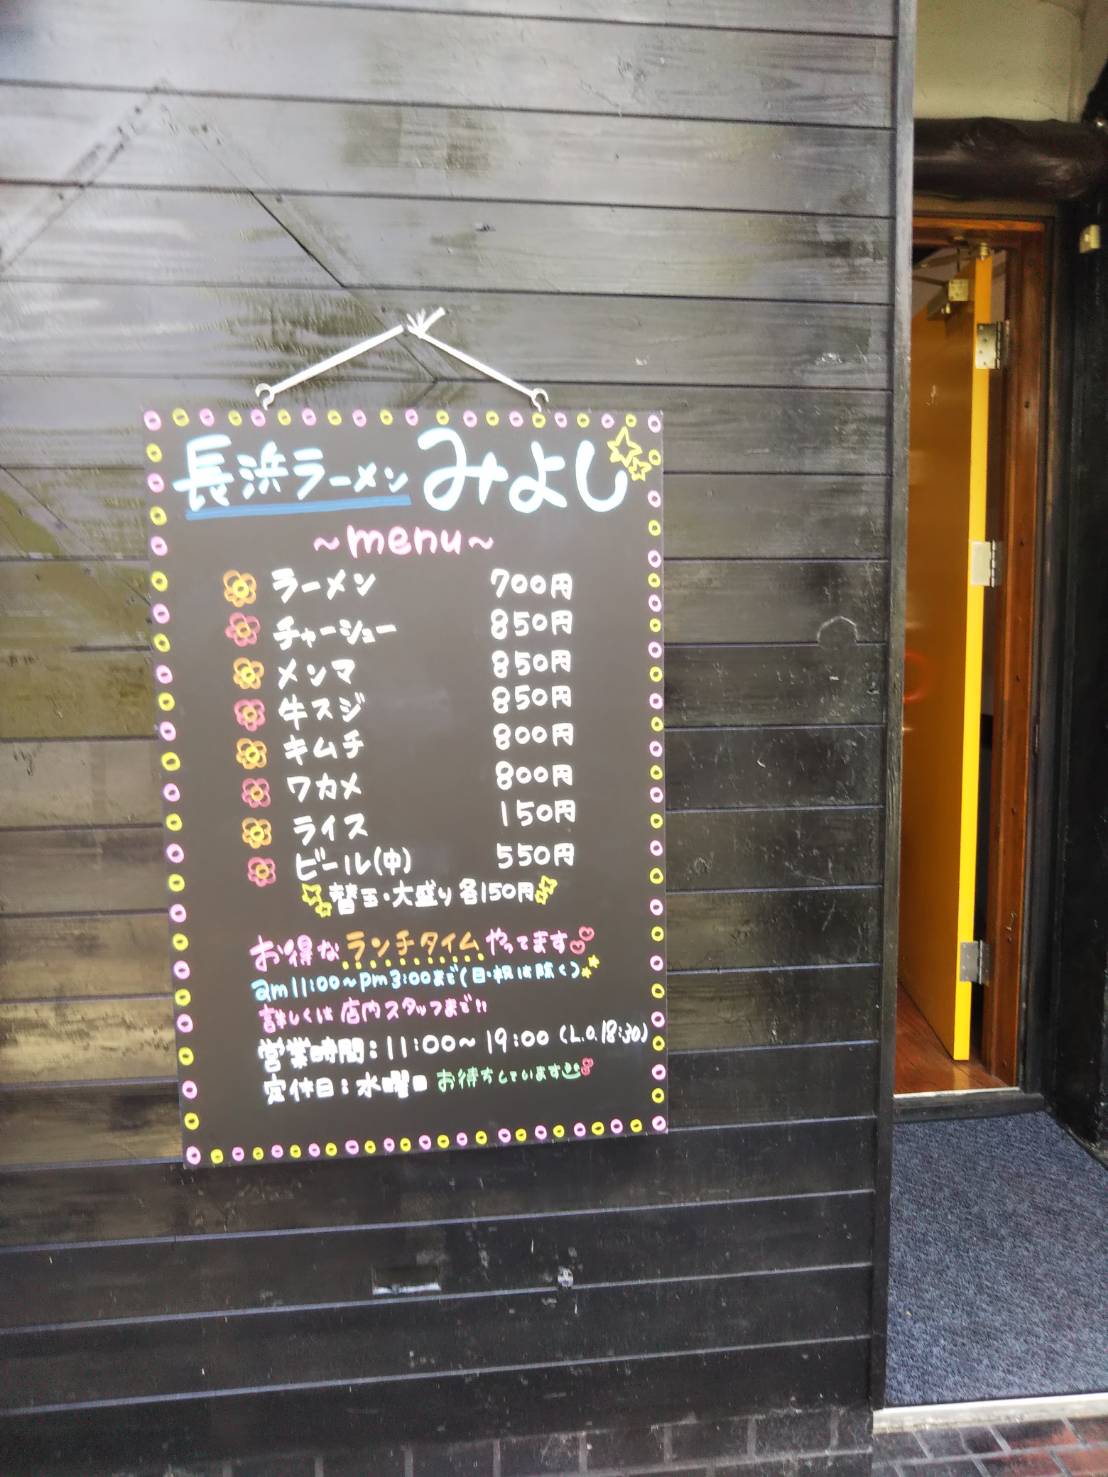 長浜ラーメン みよし
~menu~
ラーメン 700円
チャーシュー 850円
メンマ 850円
牛スジ 850円
キムチ 800円
ワカメ 800円
ライス 150円
ビール(中) 550円
替玉・大盛り 各150円
お得な ランチタイム やってます
am11:00~pm3:00まで(日・祝は除く)
詳しくは 店内スタッフまで!!
営業時間:11:00~19:00 (L.O.18:30)
定休日:水曜日 お待ちしています